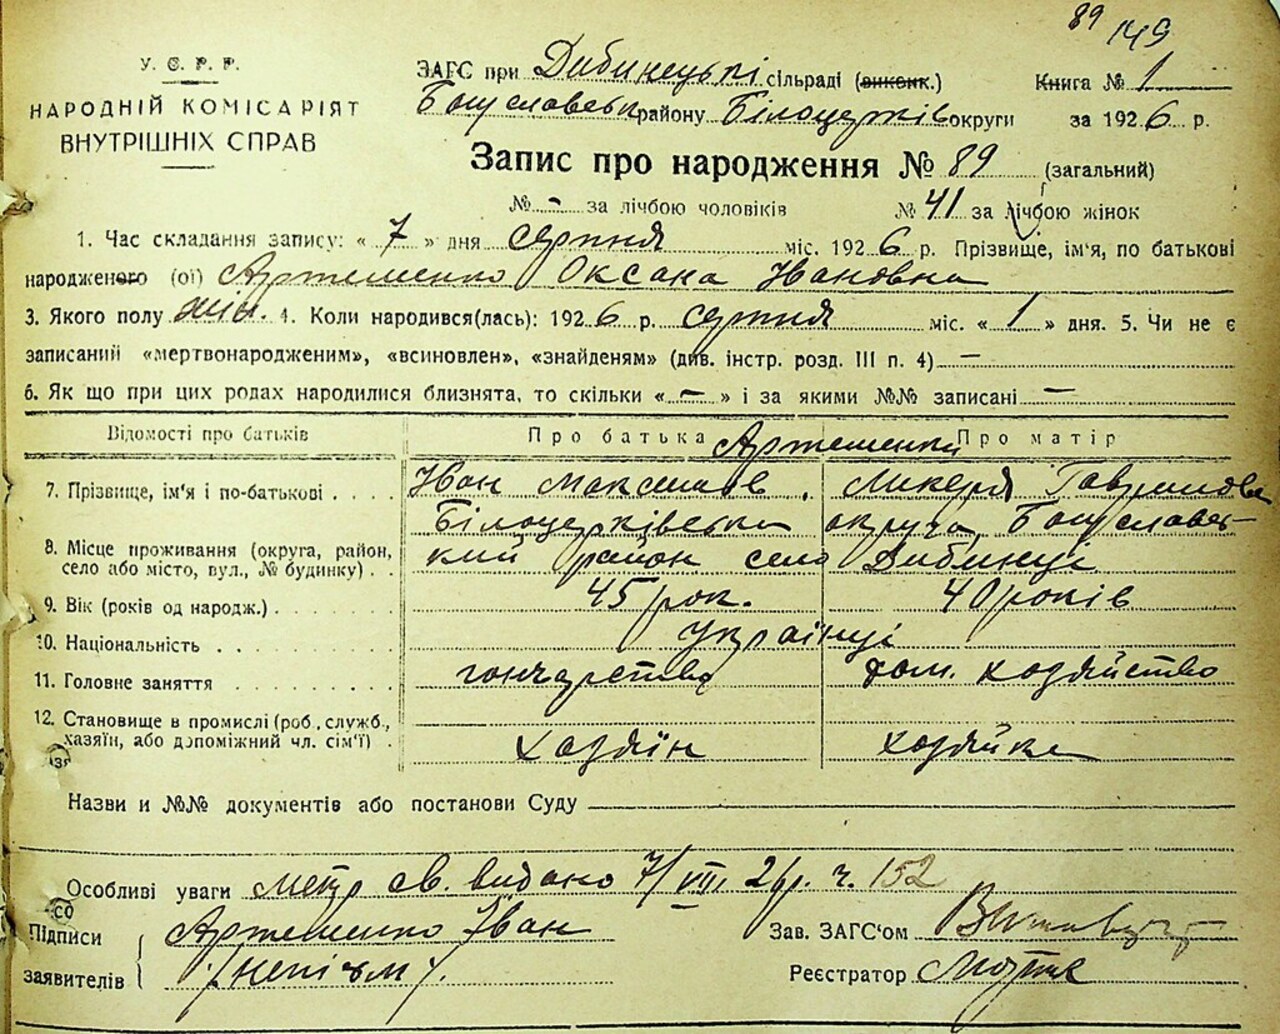 89 149
У. С. Р. Р.
НАРОДНІЙ КОМІСАРІЯТ
ВНУТРІШНІХ СПРАВ
ЗАГС при Дибинецькі сільраді (виконк.) Книга № 1
Богуславськ району Білоцерків округи за 1926 р.
Запис про народження № 89 (загальний)
№ - за лічбою чоловіків № 41 за лічбою жінок
1. Час складання запису: « 7 » дня серпня міс. 1926 р. Прізвище, ім'я, по батькові
народженого (ої) Артеменко Оксана Ивановна
3. Якого полу жін. 4. Коли народився(лась): 1926 р. серпня міс. « 1 » дня. 5. Чи не є
записаний «мертвонародженим», «всиновлен», «знайденям» (див. інстр. розд. III п. 4) —
6. Як що при цих родах народилися близнята, то скільки « — » і за якими №№ записані —
Відомості про батьків Про батька Про матір
Артеменки
7. Прізвище, ім'я і по-батькові Иван Максимов. Ликеря Гаврилова
8. Місце проживання (округа, район, село або місто, вул., № будинку) Білоцерківська округа, Богуславсь-
кий район село Дибинці
9. Вік (років од народж.) 45 рок. 40 років
10. Національність українці
11. Головне заняття гончарство дом. хозяйство
12. Становище в промислі (роб., служб., хазяїн, або допоміжний чл. сім'ї) хозяїн хозяйка
Назви и №№ документів або постанови Суду
Особливі уваги метр св. видано 7/VIII 26 р. ч. 152
Підписи заявителів Артеменко Іван
/непісм/.
Зав. ЗАГС'ом
Реєстратор